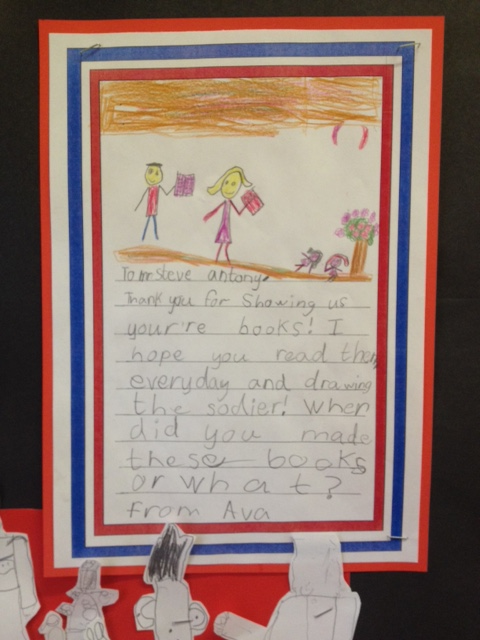 To mr steve antony.
Thank you for Showing us
your're books! I
hope you read them
everyday and drawing
the sodier! When
did you made
these books
or what?
from Ava